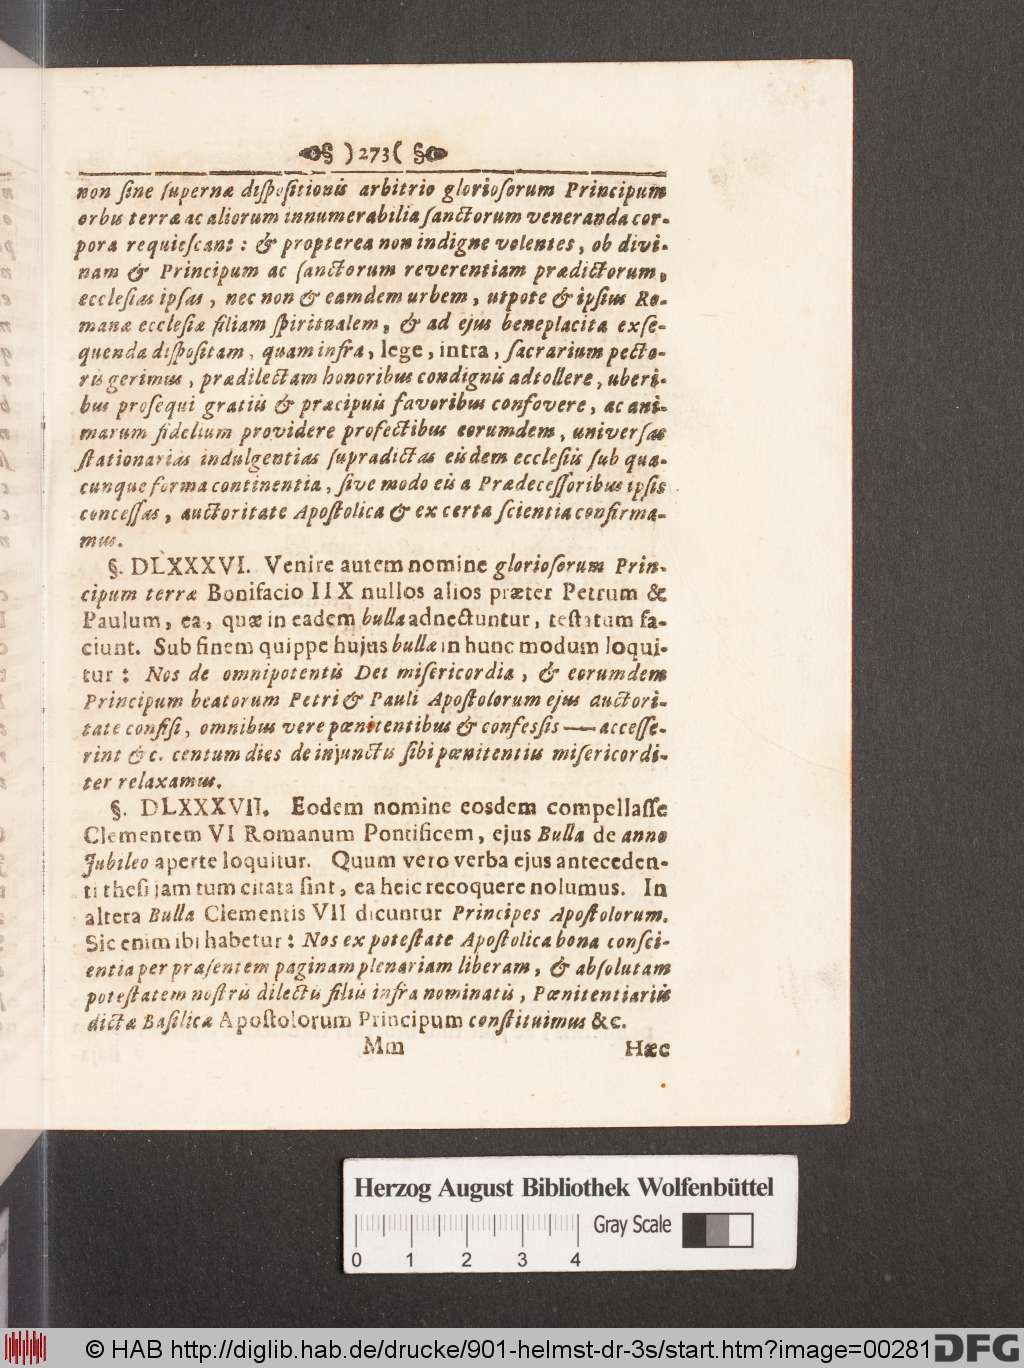 § ) 273 ( §
non ſine ſupernæ diſpoſitionis arbitrio glorioſorum Principum
orbis terræ ac aliorum innumerabilia ſanctorum veneranda cor-
pora requieſcant: & propterea non indigne volentes, ob divi-
nam & Principum ac ſanctorum reverentiam prædictorum,
ecclesias ipſas, nec non & eamdem urbem, utpote & ipſius Ro-
manæ ecclesiæ filiam ſpiritualem, & ad ejus beneplacita exſe-
quenda diſpoſitam, quam infra, lege, intra, ſacrarium pecto-
ris gerimus, prædilectam honoribus condignis adtollere, uberi-
bus proſequi gratiis & præcipuis favoribus confovere, ac ani-
marum fidelium providere profectibus eorumdem, univerſas
ſtationarias indulgentias ſupradictas eisdem eccleſiis ſub qua-
cunque forma continentia, ſive modo eis a Prædeceſſoribus ipſis
conceſſas, auctoritate Apoſtolica & ex certa ſcientia confirma-
mus.
§. DLXXXVI. Venire autem nomine glorioſorum Prin-
cipum terræ Bonifacio IIX nullos alios præter Petrum &
Paulum, ea, quæ in eadem bulla adnectuntur, teſtatum fa-
ciunt. Sub finem quippe hujus bullæ in hunc modum loqui-
tur: Nos de omnipotentis Dei miſericordia, & eorumdem
Principum beatorum Petri & Pauli Apoſtolorum ejus auctori-
tate confiſi, omnibus vere pœnitentibus & confessis — acceſſe-
rint &c. centum dies de injunctis ſibi pœnitentiis miſericordi-
ter relaxamus.
§. DLXXXVII. Eodem nomine eosdem compellaſſe
Clementem VI Romanum Pontificem, ejus Bulla de anno
Jubileo aperte loquitur. Quum vero verba ejus anteceden-
ti theſi jam tum citata ſint, ea heic recoquere nolumus. In
altera Bulla Clementis VII dicuntur Principes Apoſtolorum.
Sic enim ibi habetur: Nos ex poteſtate Apoſtolica bona conſci-
entia per præſentem paginam plenariam liberam, & abſolutam
poteſtatem noſtris dilectis filiis infra nominatis, Pœnitentiariis
dictæ Baſilicæ Apoſtolorum Principum conſtituimus &c.
Mm Hæc
Herzog August Bibliothek Wolfenbüttel
Gray Scale
0 1 2 3 4
© HAB http://diglib.hab.de/drucke/901-helmst-dr-3s/start.htm?image=00281
DFG